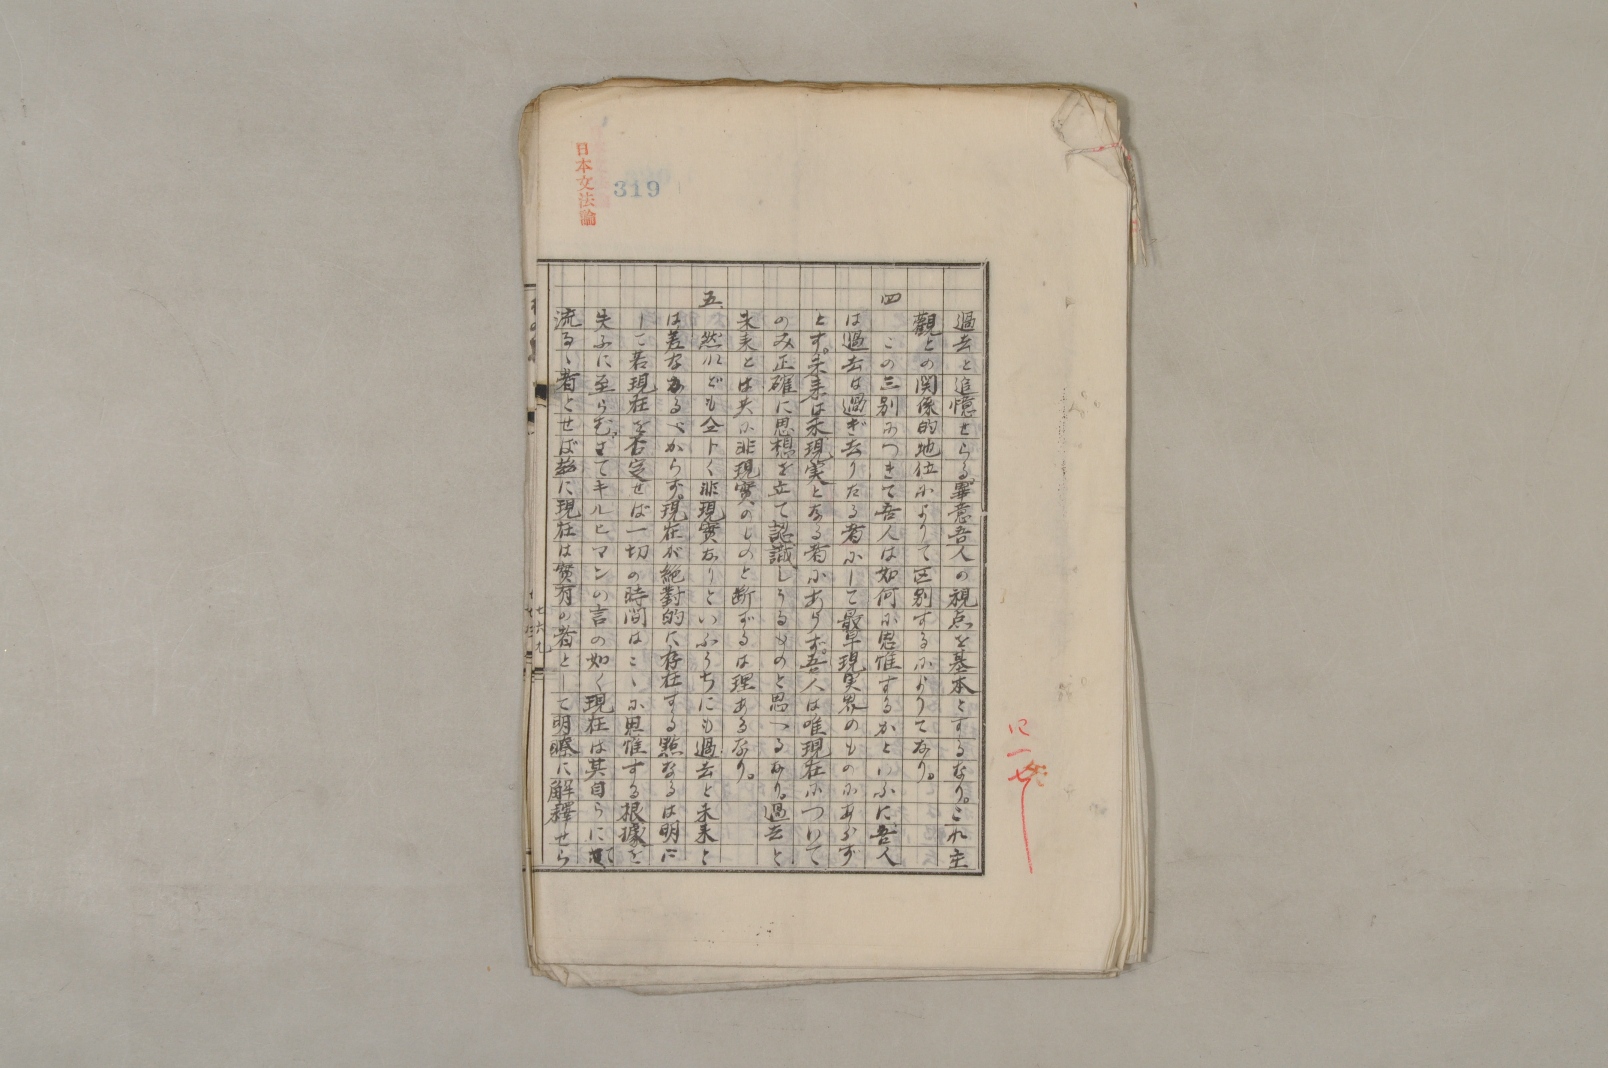 日本文法論
319
過去と追憶せらる畢意吾人の視点を基本とするなり。これ主
觀との関係的地位によりて区別するによりてなり。
四
この三別につきて吾人は如何に思惟するかといふに、吾人
は過去は過ぎ去りたる者にして最早現実界のものにあらず
とす。未来は未現実となる者にあらず。吾人は唯現在について
のみ正確に思想を立て認識しうるものと思へるなり。過去と
未来とは共に非現實のものと断ずるは理あるなり。
五
然れども仝じく非現實なりといふうちにも過去と未来と
は差なかるべからず。現在が絶對的に存在する點なるは明に
して若現在を否定せば一切の時間はこゝに思惟する根據を
失ふに至らむ。さてキルヒマンの言の如く現在は其自らにて
流るゝ者とせば故に現在は實有の者として明瞭に解釋せら
七六九
に一七